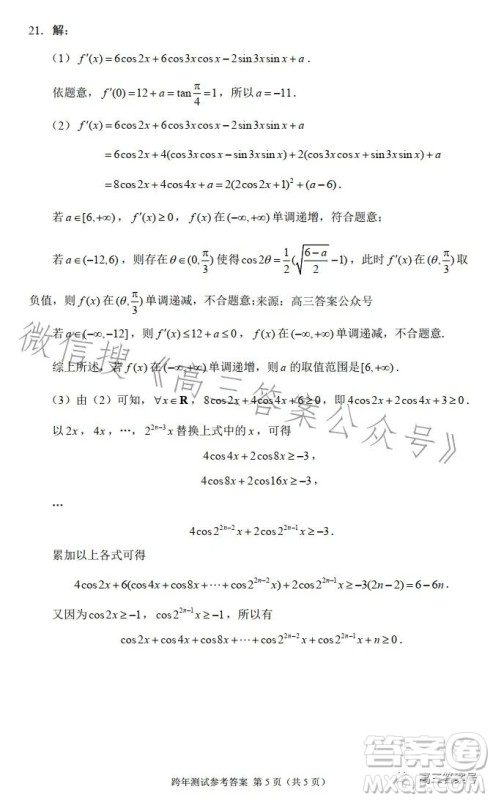 21. 解：
（1）f′(x)=6cos2x+6cos3xcosx−2sin3xsinx+a．
依题意，f′(0)=12+a=tan(π/4)=1，所以a=−11．
（2）f′(x)=6cos2x+6cos3xcosx−2sin3xsinx+a
=6cos2x+4(cos3xcosx−sin3xsinx)+2(cos3xcosx+sin3xsinx)+a
=8cos2x+4cos4x+a=2(2cos2x+1)²+(a−6)．
若a∈[6,+∞)，f′(x)≥0，f(x)在(−∞,+∞)单调递增，符合题意；
若a∈(−12,6)，则存在θ∈(0,π/3)使得cos2θ=1/2(√((6−a)/2)−1)，此时f′(x)在(θ,π/3)取
负值，则f(x)在(θ,π/3)单调递减，不合题意;来源：高三答案公众号
若a∈(−∞,−12]，则f′(x)≤12+a≤0，f(x)在(−∞,+∞)单调递减，不合题意．
综上所述，若f(x)在(−∞,+∞)单调递增，则a的取值范围是[6,+∞)．
（3）由（2）可知，∀x∈R，8cos2x+4cos4x+6≥0，即4cos2x+2cos4x+3≥0．
以2x，4x，…，2^(2n−3)x替换上式中的x，可得
4cos4x+2cos8x≥−3，
4cos8x+2cos16x≥−3，
…
4cos2^(2n−2)x+2cos2^(2n−1)x≥−3．
累加以上各式可得
4cos2x+6(cos4x+cos8x+⋯+cos2^(2n−2)x)+2cos2^(2n−1)x≥−3(2n−2)=6−6n．
又因为cos2x≥−1，cos2^(2n−1)x≥−1，所以有
cos2x+cos4x+cos8x+⋯+cos2^(2n−2)x+cos2^(2n−1)x+n≥0．
微信搜《高三答案公众号》
跨年测试参考答案 第5页（共5页）
高三答案号